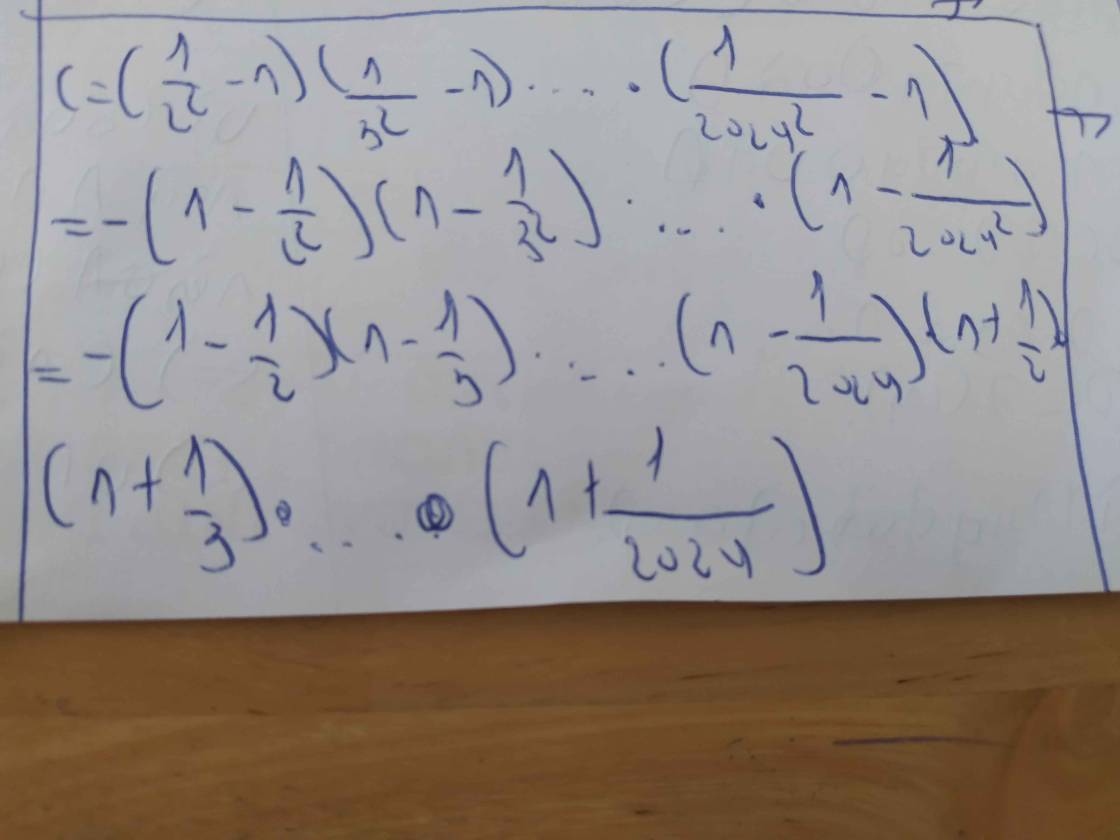 C=(1/2² -1)(1/3² -1)·....·(1/2024² -1)
=-(1-1/2²)(1-1/3²)·....·(1-1/2024²)
=-(1-1/2)(1-1/3)·....(1-1/2024)(1+1/2)
(1+1/3)·....·(1+1/2024)